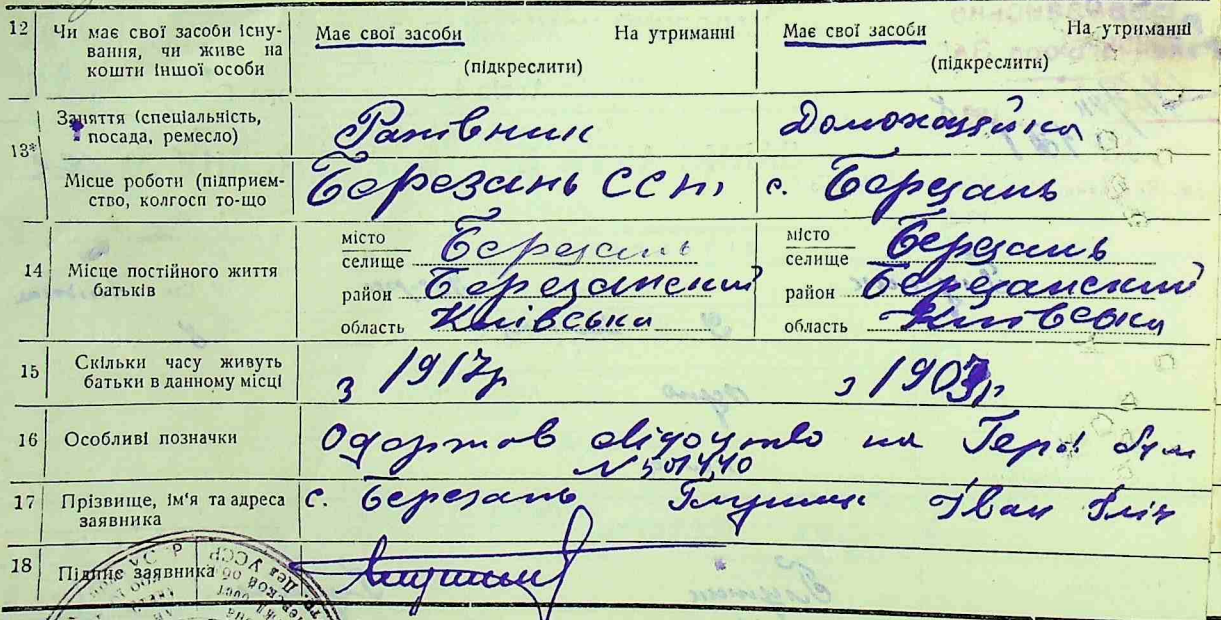 12 Чи має свої засоби існу-
вання, чи живе на
кошти іншої особи
Має свої засоби На утриманні
(підкреслити)
Має свої засоби На утриманні
(підкреслити)
13* Заняття (спеціальність,
посада, ремесло)
Рахівник
Домохазяйка
Місце роботи (підприєм-
ство, колгосп то-що
Березань ССТ
с. Березань
14 Місце постійного життя
батьків
місто
селище Березань
район Березанский
область Київська
місто
селище Березань
район Березанский
область Київська
15 Скільки часу живуть
батьки в данному місці
з 1917р
з 1903р
16 Особливі позначки
Одержав свідоцтво на
17 Прізвище, ім'я та адреса
заявника
с. Березань Іван
18 Підпис заявника
УССР